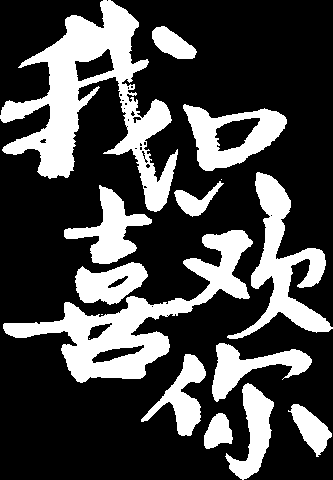 我只
喜欢
你